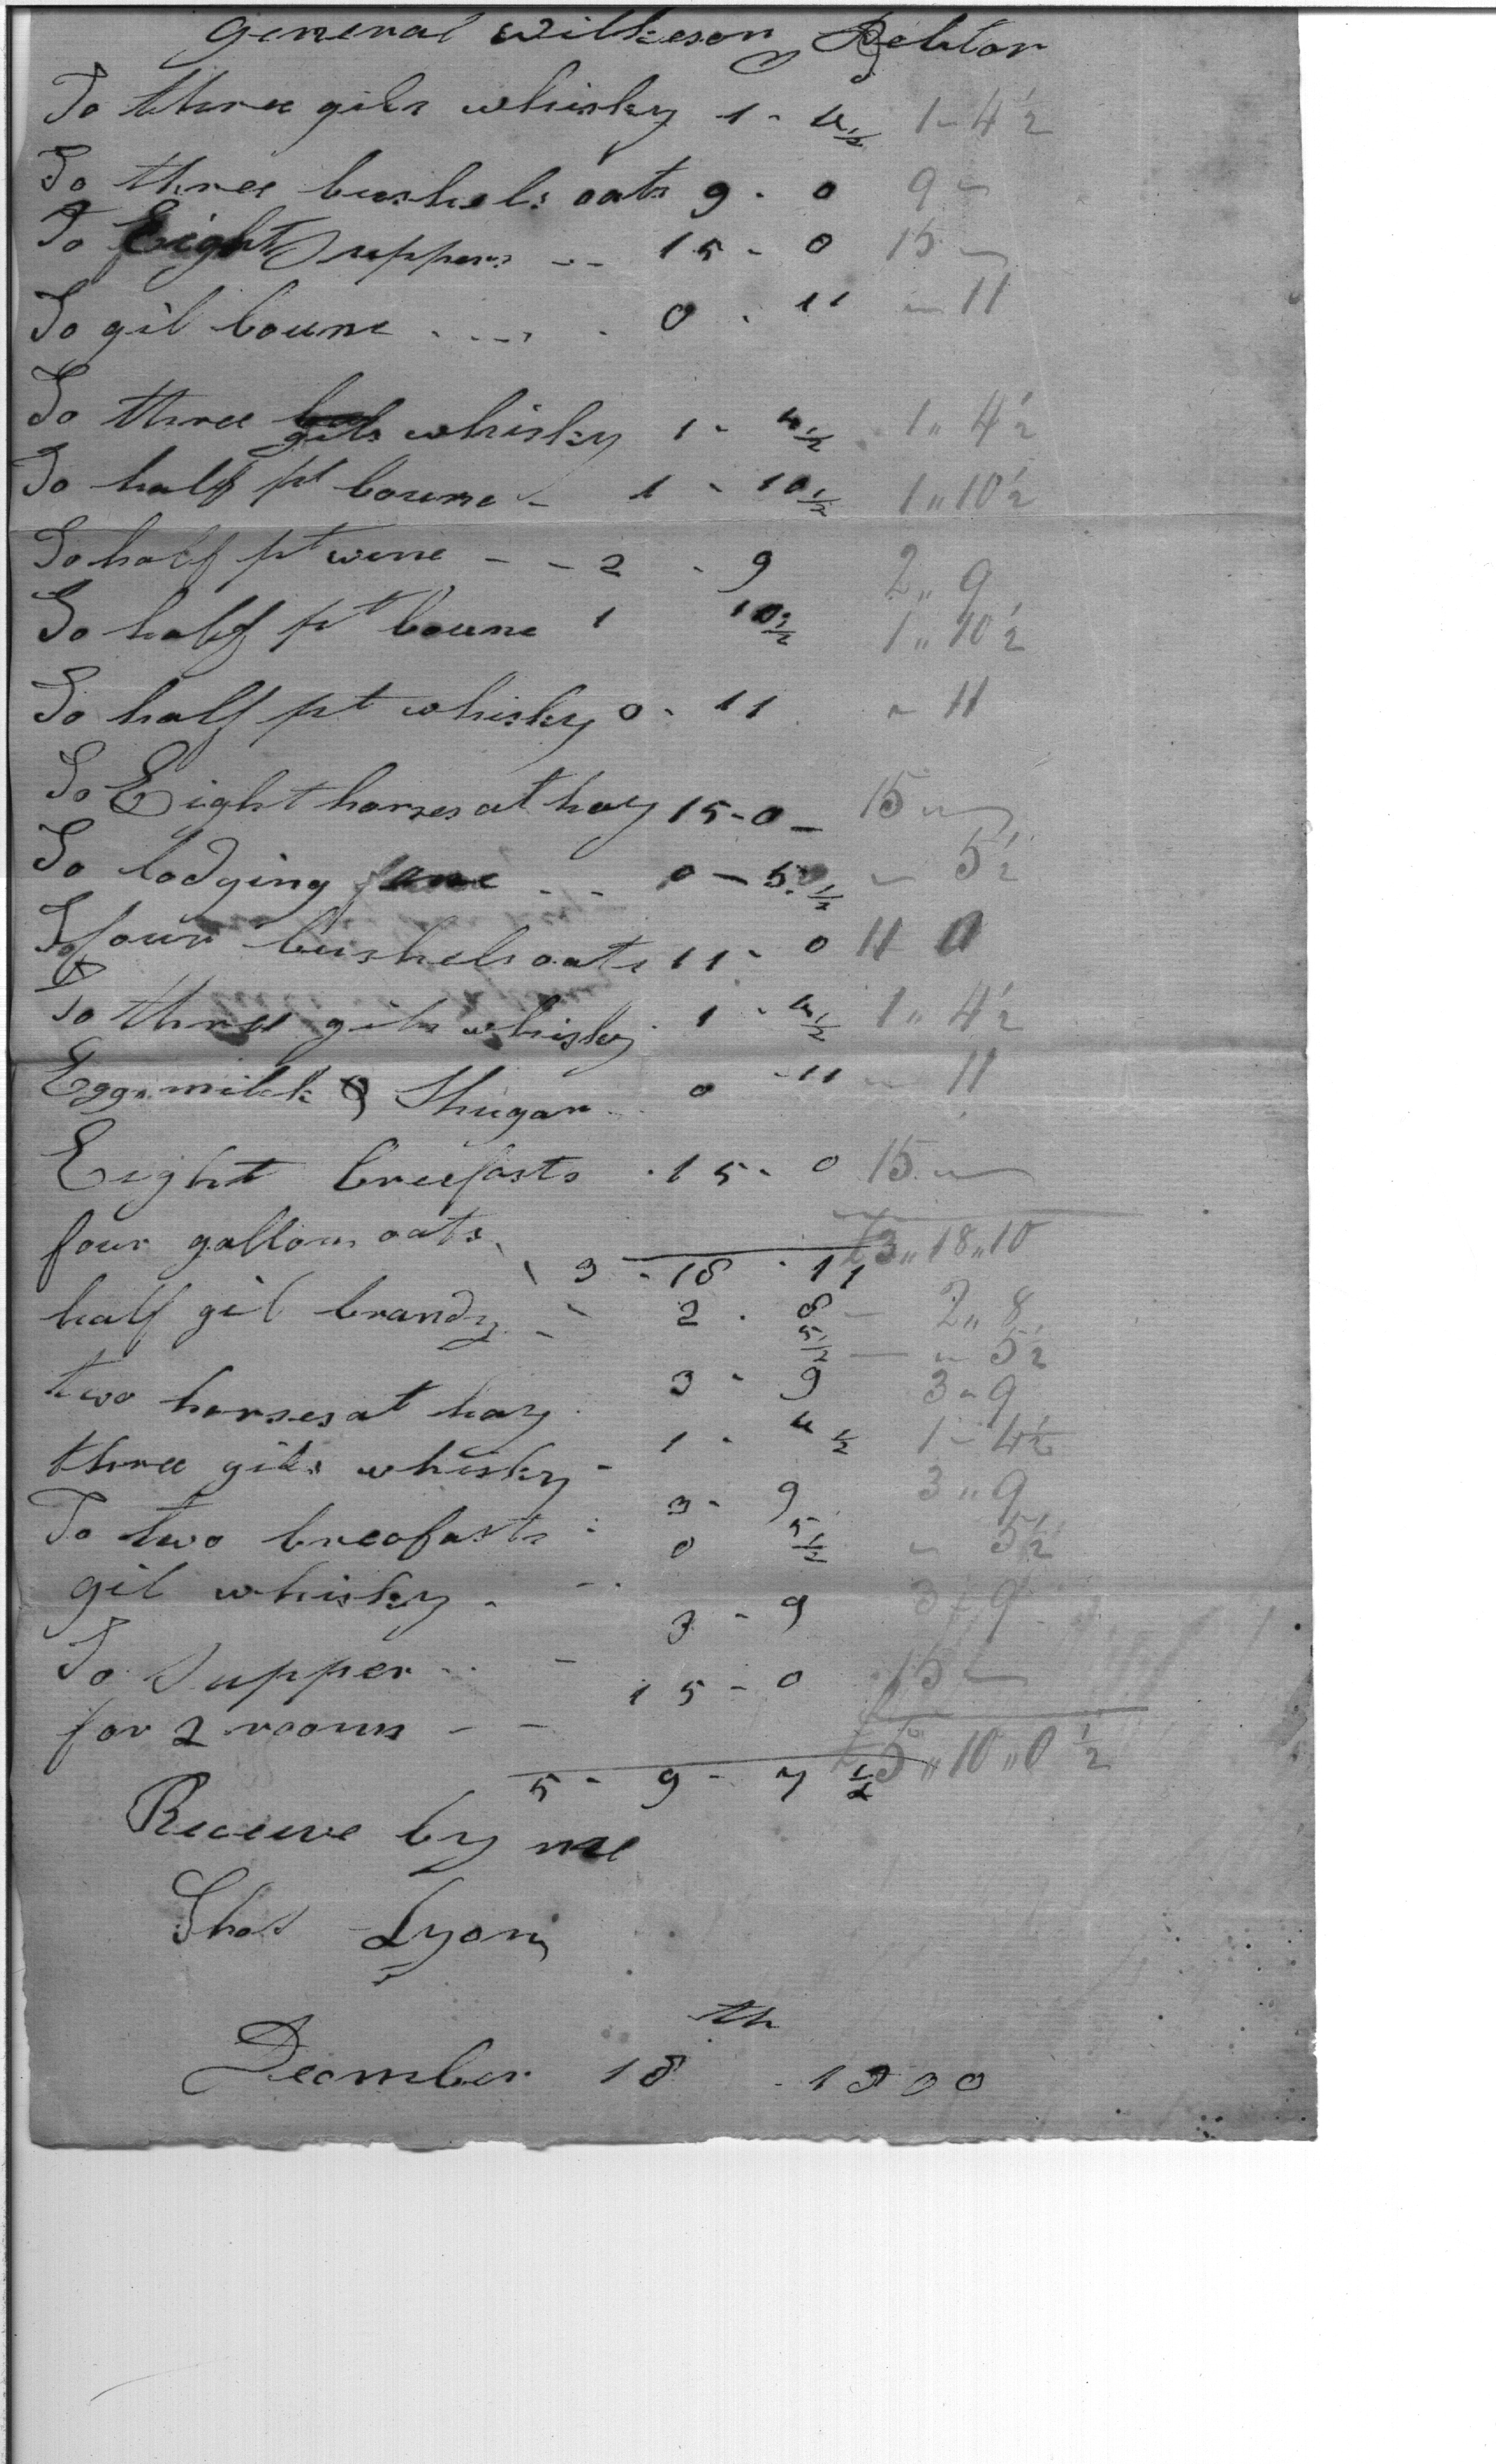 General Wilkeson Debtor
To three gils whisky 1 - 4 1/2 1 - 4 1/2
To three bushels oats 9 - 0 9 -
To Eight Suppers -- 15 - 0 15 -
To gil boune . --- - 0 - 11 - 11
To three gils whisky 1 - 4 1/2 1 " 4 1/2
To half pt boune - 1 - 10 1/2 1 " 10 1/2
To half pt wine - - 2 - 9 2 " 9
To half pt boune 1 10 1/2 1 " 10 1/2
To half pt whisky 0 - 11 - 11
To Eight horses at hay 15 - 0 - 15 -
To lodging -- 0 - 5 1/2 - 5 1/2
To four bushels oats 11 - 0 11 0
To three gils whisky 1 - 4 1/2 1 " 4 1/2
Eggs milk & Shugar 0 - 11 - 11
Eight brecfasts - 15 - 0 15 -
£3 " 18 " 10
four gallons oats
3 - 18 - 11
half gil brandy - - 2 - 8 - 2 " 8
5 1/2 - - 5 1/2
two horses at hay 3 - 9 3 - 9
three gils whisky - 1 - 4 1/2 1 - 4 1/2
To two brecfasts - 3 - 9 3 " 9
gil whisky - 0 5 1/2 - 5 1/2
To Supper - - 3 - 9 3 " 9
for 2 rooms - - 15 - 0 15 -
5 - 9 - 7 1/2 £5 " 10 " 0 1/2
Receive by me
Thos Lyons
December 18th 1800